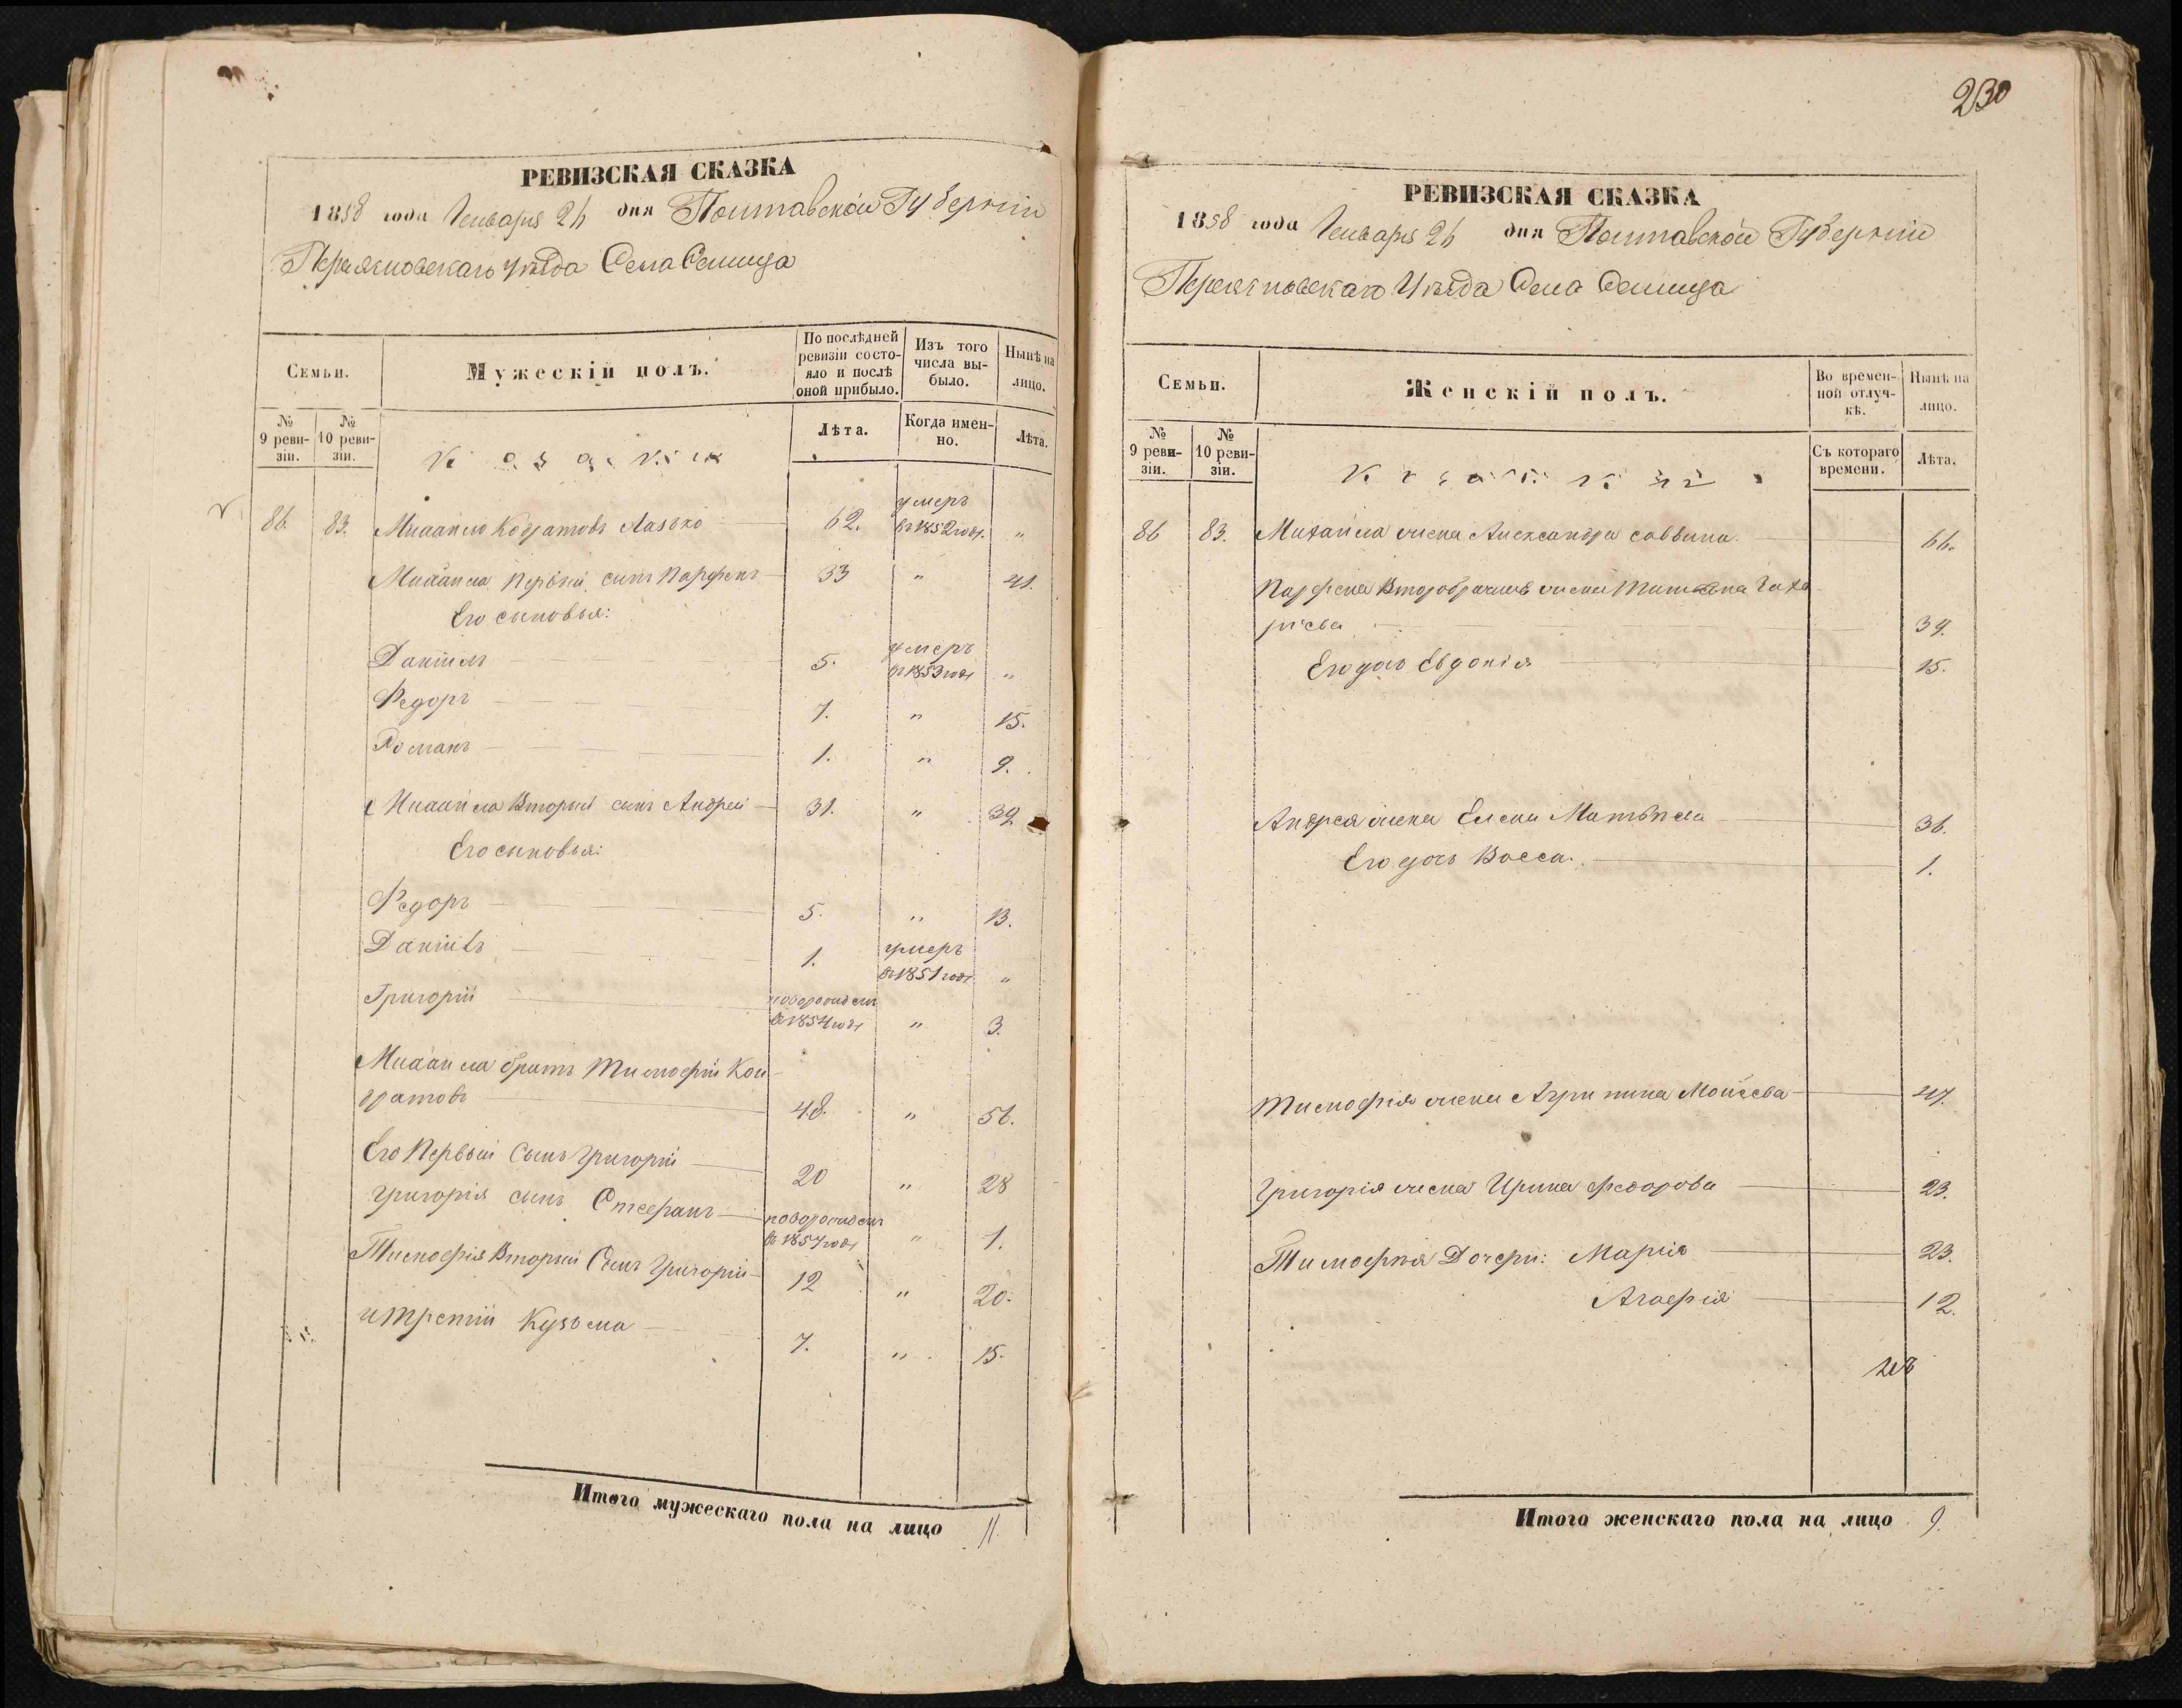 РЕВИЗСКАЯ СКАЗКА
1858 года Генваря 26 дня Полтавской Губерніи
Переяславскаго уѣзда Села Семица
Семьи.
Мужескій полъ.
По послѣдней ревизіи состояло и послѣ оной прибыло.
Изъ того числа выбыло.
Нынѣ на лицо.
№ 9 ревизіи.
№ 10 ревизіи.
Казаки
Лѣта.
Когда именно.
Лѣта.
86 83. Михайло Кондратовъ Лазько 62. умеръ въ 1852 годѣ. "
Михайла первый сынъ Парфенъ 33 " 41.
Его сыновья:
Даніилъ 5. умеръ въ 1853 годѣ "
Федоръ 7. " 15.
Романъ 1. " 9.
Михайла Вторый сынъ Андрей 31. " 39
Его сыновья:
Федоръ 5. " 13.
Даніилъ 1. умеръ въ 1851 годѣ "
Григорій новорожден въ 1854 годѣ " 3.
Михайла братъ Тимофій Кон-
дратовъ 48. " 56.
Его Первый Сынъ Григорій 20 " 28
Григорія сынъ Стефанъ новорожден въ 1857 годѣ " 1.
Тимофія Вторый Сынъ Григорій 12 " 20.
и Третій Кузьма 7. " 15.
Итого мужескаго пола на лицо 11.
230
РЕВИЗСКАЯ СКАЗКА
1858 года Генваря 26 дня Полтавской Губерніи
Переяславскаго Уѣзда Села Семица
Семьи.
Женскій полъ.
Во временной отлучкѣ.
Нынѣ на лицо.
№ 9 ревизіи.
№ 10 ревизіи.
Съ котораго времени.
Лѣта.
86 83. Михайла жена Александра Саввина 66.
Парфена Второбрачная жена Татьяна Заха-
ріева 39.
Его дочь Евдокія 15.
Андрея жена Елена Матвѣева 36.
Его дочь Васса. 1.
Тимофія жена Агрипина Моисеева 47.
Григорія жена Ирина Федорова 23.
Тимофія Дочери: Марія 23.
Агафія 12.
Итого женскаго пола на лицо 9.